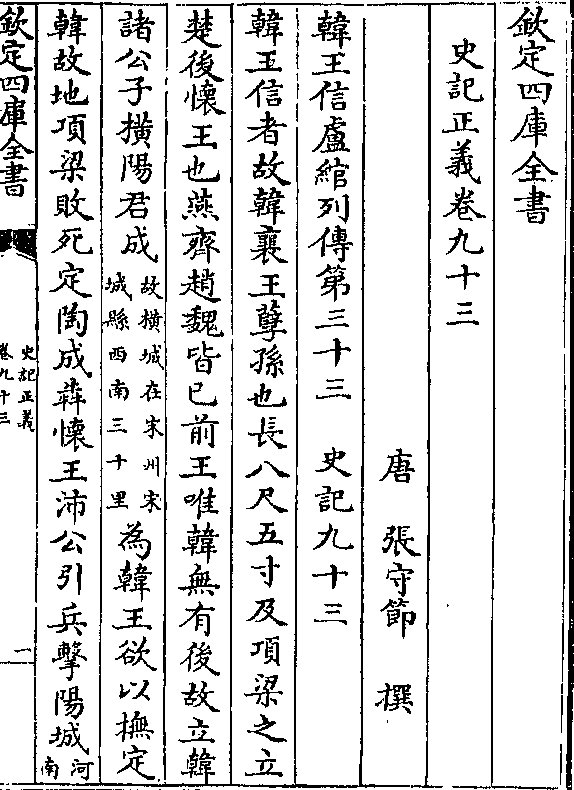 欽定四庫全書
史記正義卷九十三
唐 張守節 撰
韓王信盧綰列傳第三十三 史記九十三
韓王信者故韓襄王孽孫也長八尺五寸及項梁之立
楚後懷王也燕齊趙魏皆已前王唯韓無有後故立韓
諸公子橫陽君成故橫城在宋州宋城縣西南三十里為韓王欲以撫定
韓故地項梁敗死定陶成犇懷王沛公引兵擊陽城河南
欽定四庫全書
史記正義
卷九十三
一